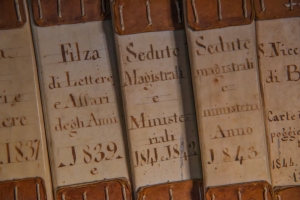 e
cere
1837
Filza
di Lettere
e Affari
degli Anni
1839
e
Sedute
Magistrali
e
Ministe
riali
1841.1842
Sedute
magistrali
e
ministeri
Anno
1843
S. Nicc
di B
Carte
pegg
1844